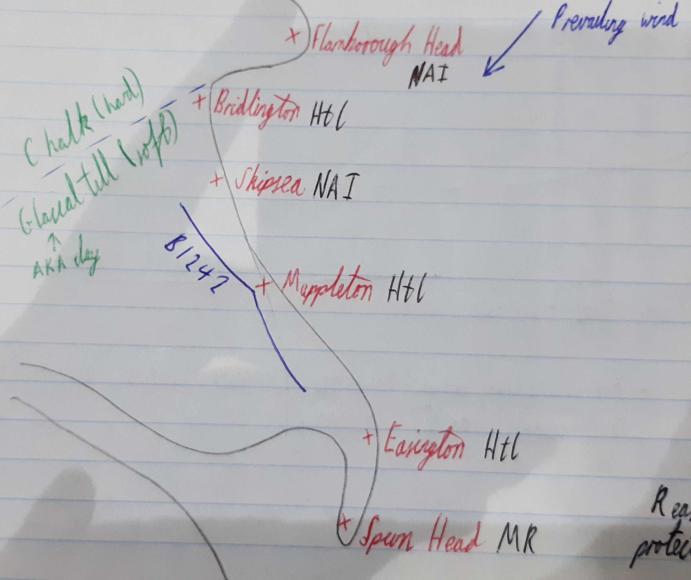 Prevailing wind
Flamborough Head
NAI
Chalk (hard)
Bridlington Htl
Glacial till (soft)
AKA clay
Skipsea NAI
B1242
Mappleton Htl
Easington Htl
Spurn Head MR
Rea
protec